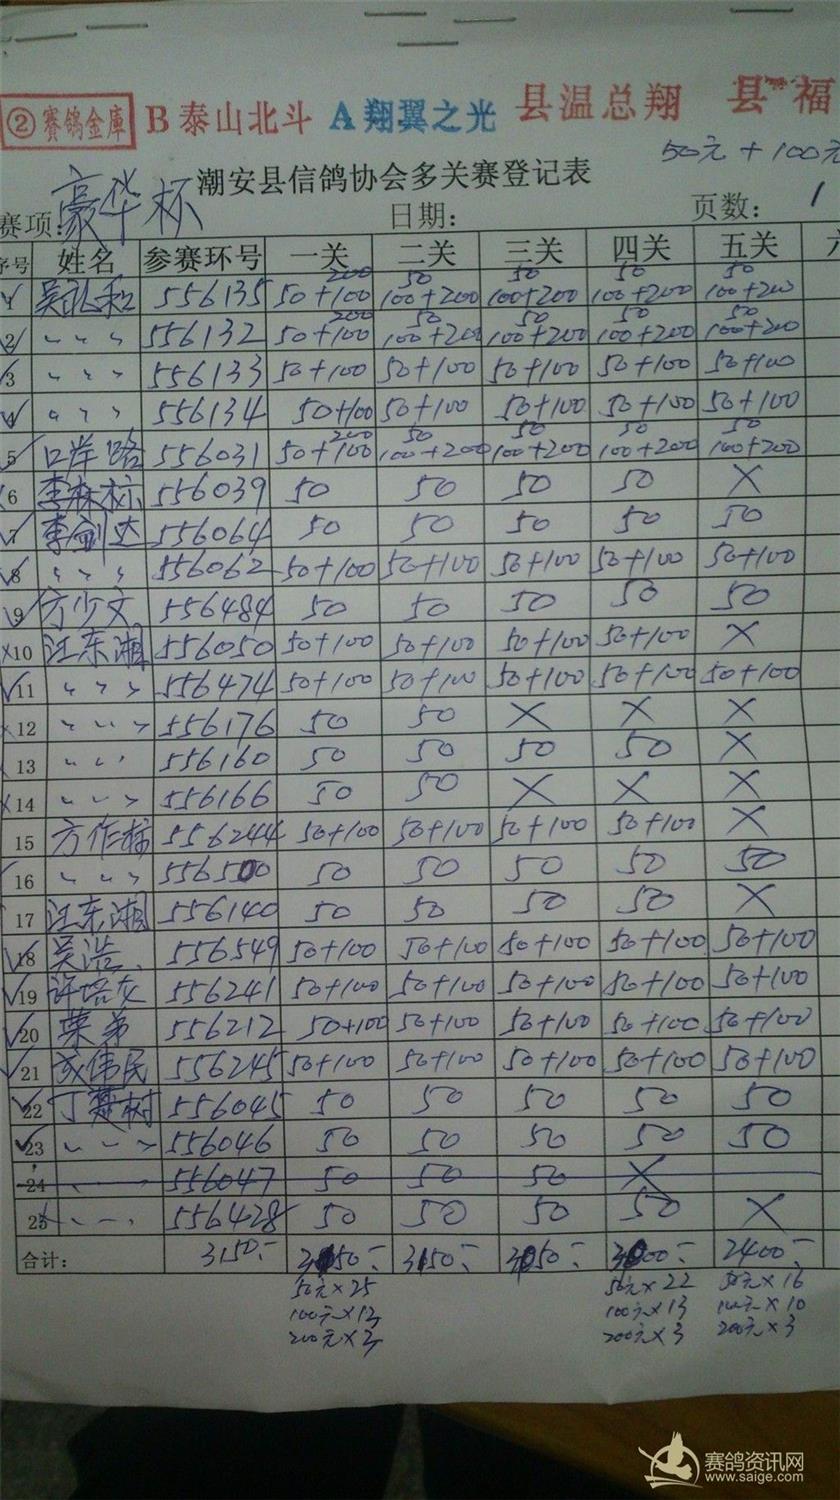 ② 赛鸽金庫 B 泰山北斗 A 翔翼之光 县温总翔 县 福
50元 + 100元
潮安县信鸽协会多关赛登记表
赛项: 豪华杯 日期: 页数: 1
序号 姓名 参赛环号 一关 二关 三关 四关 五关 六
1 吴孔和 556135 50+100 200 50 100+200 50 100+200 50 100+200 50 100+200
2 〃 〃 〃 556132 50+100 200 50 100+200 50 100+200 50 100+200 50 100+200
3 〃 〃 〃 556133 50+100 50+100 50+100 50+100 50+100
4 〃 〃 〃 556134 50+100 50+100 50+100 50+100 50+100
5 口岸路 556031 50+100 200 50 100+200 50 100+200 50 100+200 50 100+200
6 李林标 556039 50 50 50 50 X
7 李剑达 556064 50 50 50 50 50
8 〃 〃 〃 556062 50+100 50+100 50+100 50+100 50+100
9 方少文 556484 50 50 50 50 50
10 江东湘 556050 50+100 50+100 50+100 50+100 X
11 〃 〃 〃 556474 50+100 50+100 50+100 50+100 50+100
12 〃 〃 〃 556176 50 50 X X X
13 〃 〃 〃 556160 50 50 50 50 X
14 〃 〃 〃 556166 50 50 X X X
15 方作标 556244 50+100 50+100 50+100 50+100 X
16 〃 〃 〃 556500 50 50 50 50 50
17 江东湘 556140 50 50 50 50 X
18 吴浩 556549 50+100 50+100 50+100 50+100 50+100
19 556241 50+100 50+100 50+100 50+100 50+100
20 弟 556212 50+100 50+100 50+100 50+100 50+100
21 伟民 556245 50+100 50+100 50+100 50+100 50+100
22 丁楚树 556045 50 50 50 50 50
23 〃 〃 〃 556046 50 50 50 50 50
24 〃 556047 50 50 50 X
25 〃 〃 〃 556428 50 50 50 50 X
合计: 3150.- 3150.- 3150.- 3050.- 3000.- 2400.-
50元×25 50元×22 50元×16
100元×13 100元×13 100元×10
200元×3 200元×3 200元×3
赛鸽资讯网
www.saige.com